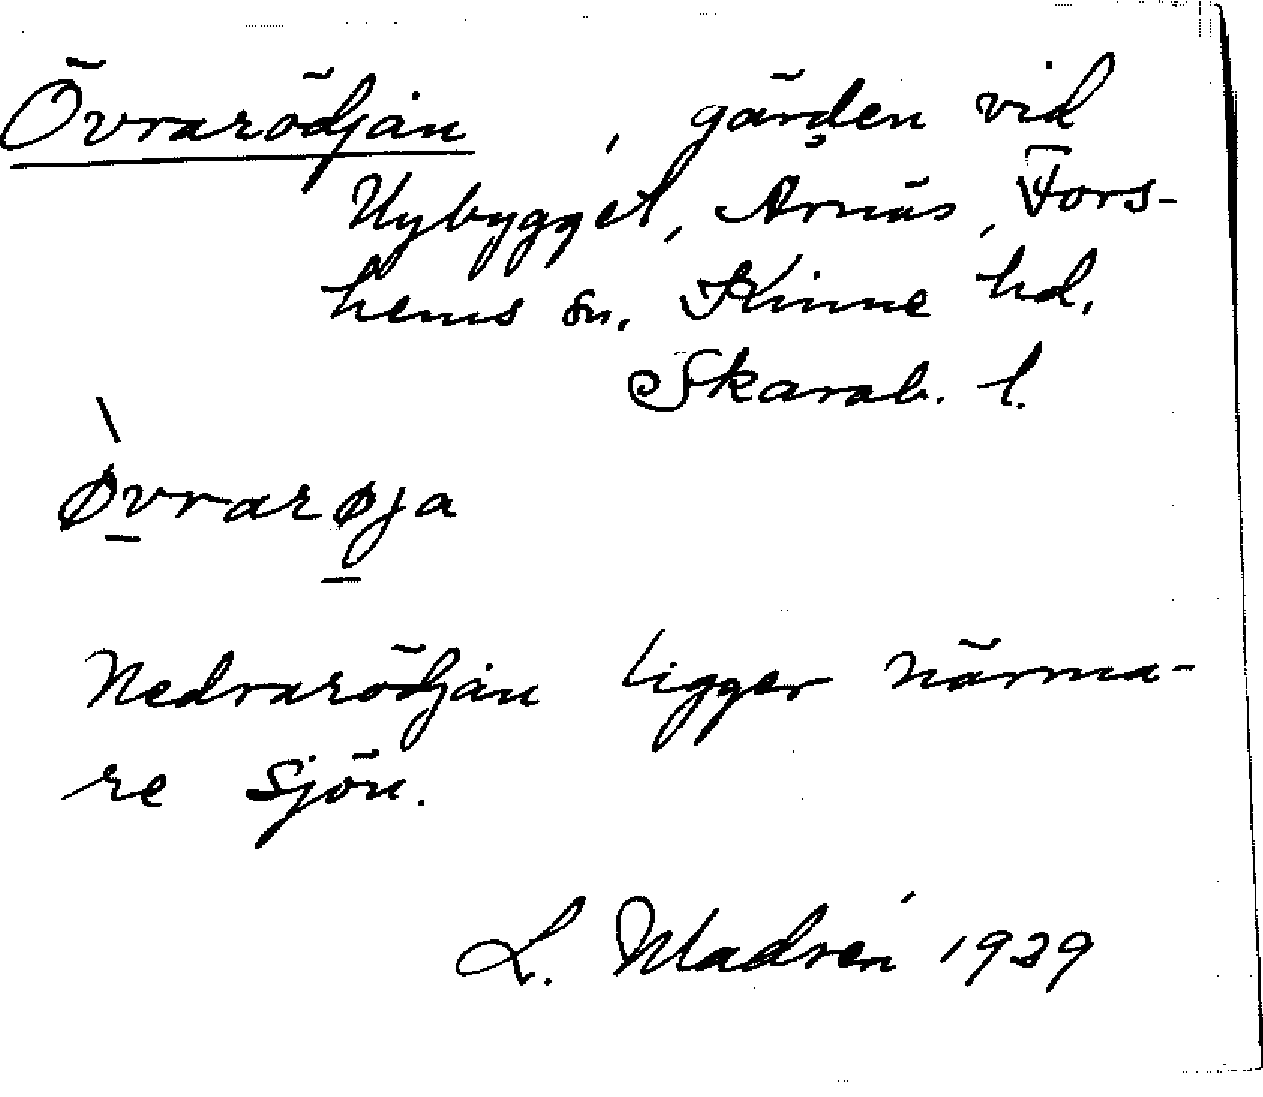 Övrarödjan, gärden vid
Nybygget, Arnäs, Fors-
hems sn. Kinne hd.
Skarab. l.
Øvrarøja
Nedrarödjan ligger närma-
re sjön.
L. Madrén 1929